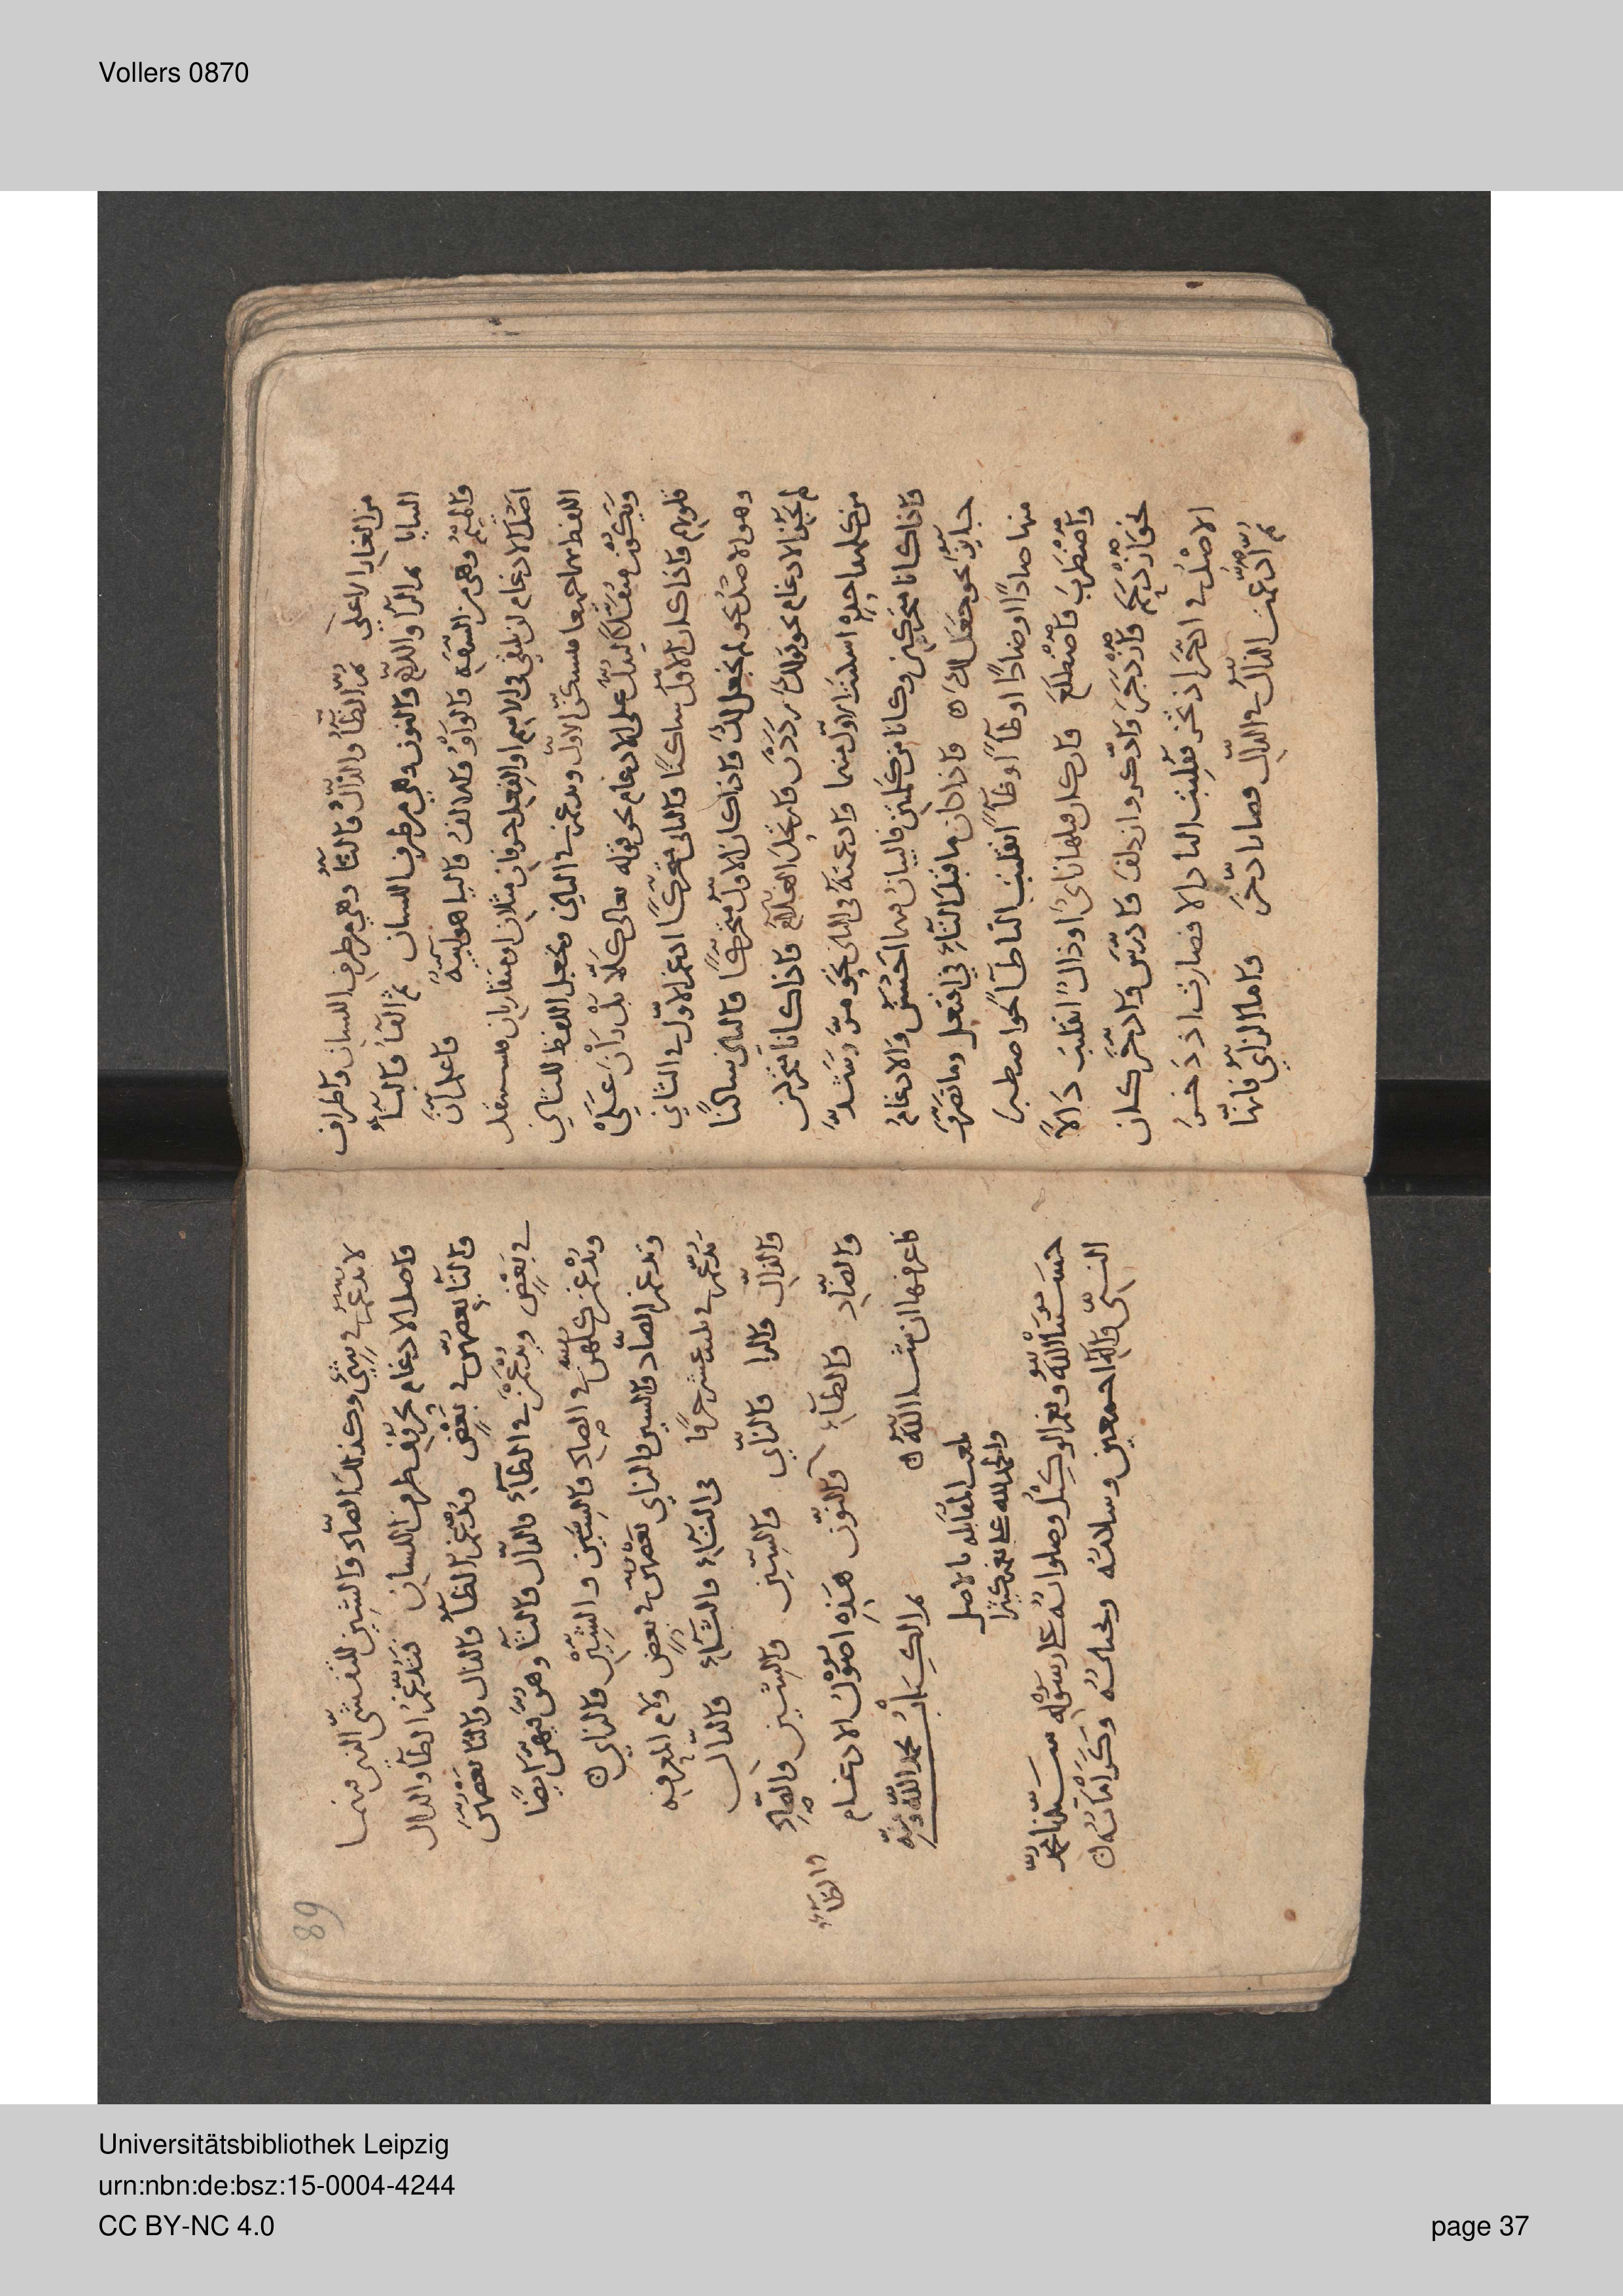 Vollers 0870
من الغار الاعلى ثم الظآء والذال والثآء وهي من طرف اللسان واطراف
الثنايا ثم الرآ واللام والنون وهي من طرف اللسان ثم الفآء والبآء
والميم وهي من الشفة والواو والالف واليا هوايية واعلم ان
اصل الادغام ان يلتقي في الاسم او الفعل حرفان مثلان او متقاربان فيستثقل
اللفظ بهما جميعا فيسكن الاول ويدغم في الثاني ويجعل اللفظ للثاني
ويكون مثقلا ليدل على الادغام نحو قوله تعالى كلا بل ران على
قلوبهم واذا كان الاول ساكنا والثاني متحركا ادغم الاول في الثاني
وهو الاصل نحو لم يجعل لك واذا كان الاول متحركا والثاني ساكنا
لم يجز الادغام نحو قولك رددت واذا كانا متحركين
من كلمة واحدة اسكنت الاول منهما وادغمته في الثاني نحو مد وشد
واذا كانا متحركين وكانا من كلمتين فالبيان فيهما احسن والادغام
جايز نحو جعل لك ه واذا كان ما قبل التاء في افتعل وما تصرف
منها صادا او ضادا او طآء او ظآء انقلبت التا طآء نحو اصطبر
واضطرب واضطلع وان كان قبلها زاي او ذال انقلبت دالا
نحو ازدجر وازدجر وادكر وازدلف وادرس وادخر كان
الاصل في ادخر اذتخر فقلبت التا دالا فصارت اذدخر
ثم ادغمت الذال في الدال فصار ادخر واما الزاي فانها
89
لا تدغم في شيء وكذلك الصاد والشين للتفشي الذي فيهما
واصل الادغام لحروف طرف اللسان فتدغم الطآ والدال
والتآ بعضهن في بعض وتدغم الظآء والذال والثا بعضهن
في بعض ويدغمن في الطآء والدال والتآ وهن فيهن ايضا
ويدغمن كلهن في الصاد والسين والشين والزاي ه
وتدغم الصاد والسين والزاي بعضهن في بعض ولام المعرفة
تدغم في ثلثة عشر حرفا في التاء والثاء والدال
والذال والرا والزاي والسين والشين والصاد
والضاد والطاء والنون هذه اصول الادغام
والظآء
فاعرفها ان شا الله ه تم الكتاب بحمد الله ومنه
بلغت المقابلة بالاصل
والحمد لله على نعمه كثيرا
حسبنا الله ونعم الوكيل وصلواته على رسوله سيدنا محمد
النبي واله اجمعين وسلامه وتحياته وكراماته ه
Universitätsbibliothek Leipzig
urn:nbn:de:bsz:15-0004-4244
CC BY-NC 4.0
page 37